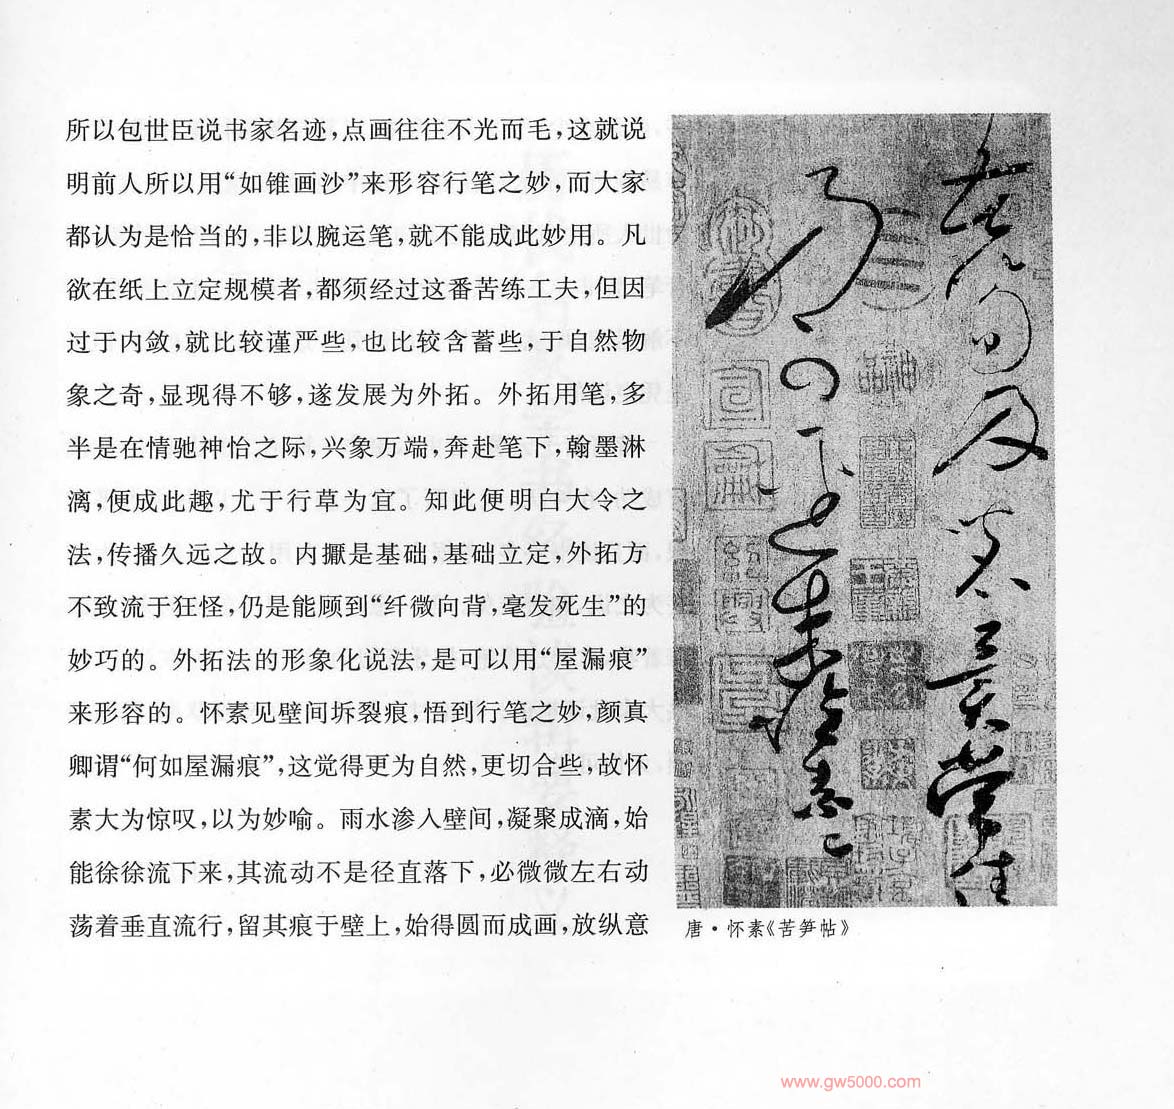 所以包世臣说书家名迹，点画往往不光而毛，这就说
明前人所以用“如锥画沙”来形容行笔之妙，而大家
都认为是恰当的，非以腕运笔，就不能成此妙用。凡
欲在纸上立定规模者，都须经过这番苦练工夫，但因
过于内敛，就比较谨严些，也比较含蓄些，于自然物
象之奇，显现得不够，遂发展为外拓。外拓用笔，多
半是在情驰神怡之际，兴象万端，奔赴笔下，翰墨淋
漓，便成此趣，尤于行草为宜。知此便明白大令之
法，传播久远之故。内擫是基础，基础立定，外拓方
不致流于狂怪，仍是能顾到“纤微向背，毫发死生”的
妙巧的。外拓法的形象化说法，是可以用“屋漏痕”
来形容的。怀素见壁间坼裂痕，悟到行笔之妙，颜真
卿谓“何如屋漏痕”，这觉得更为自然，更切合些，故怀
素大为惊叹，以为妙喻。雨水渗入壁间，凝聚成滴，始
能徐徐流下来，其流动不是径直落下，必微微左右动
荡着垂直流行，留其痕于壁上，始得圆而成画，放纵意
苦笋及茗異常佳
乃可逕來懷素上
唐·怀素《苦笋帖》
www.gw5000.com